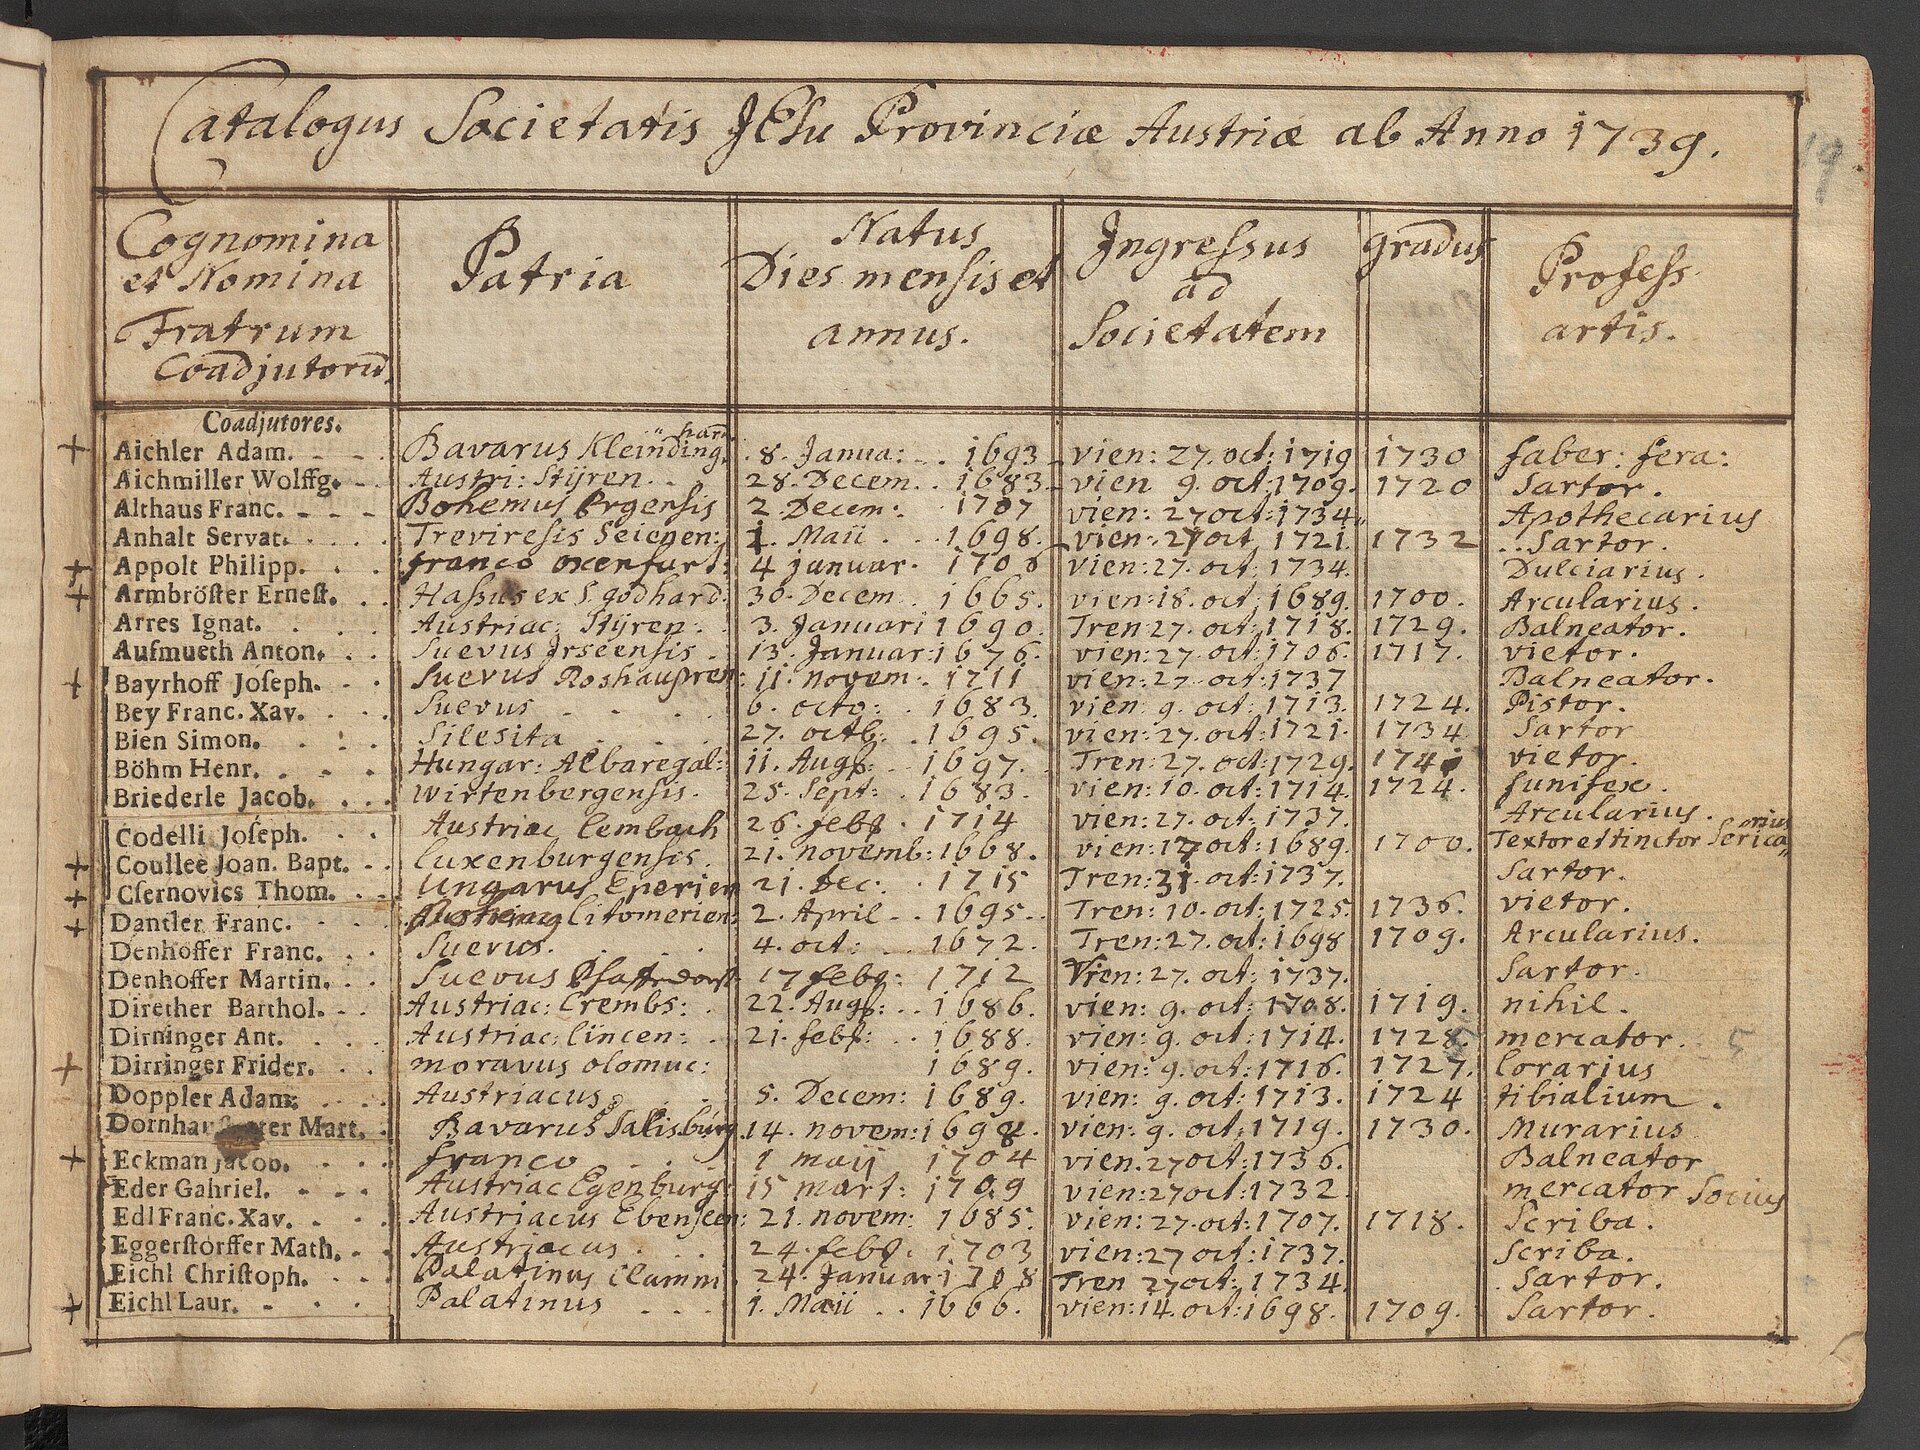 Catalogus Societatis JEsu Provinciæ Austriæ ab Anno 1739.
Cognomina et Nomina Fratrum Coadjutorũ. Patria Natus Dies mensis et annus. Ingressus ad Societatem gradus Profess artis.
Coadjutores.
Aichler Adam. Bavarus Kleinding hard. 8. Janua: 1693 vien: 27. oct: 1719 1730 faber: fera:
Aichmiller Wolffg. Austri: Stÿren. 28. Decem. 1683. vien 9. oct: 1709. 1720 Sartor.
Althaus Franc. Bohemus Ergensis 2. Decem: 1707 vien: 27 oct: 1734. Apothecarius
Anhalt Servat. Treviresis Seienen: 1. Maii 1698. vien: 27 oct 1721. 1732 Sartor.
Appolt Philipp. franco oxenfurt: 4 januar. 1706 vien: 27. oct: 1734. Dulciarius.
Armbröster Ernest. Hassus ex S godhard. 30. Decem 1665. vien: 18. oct: 1689. 1700. Arcularius.
Arres Ignat. Austriac: Stÿren: 3. Januari 1690. Tren: 27. oct: 1718. 1729. Balneator.
Aufmueth Anton. Suevus Jrseensis 13. Januar: 1676. vien: 27. oct: 1706. 1717. vietor.
Bayrhoff Joseph. Suevus Roshaupten: 11. novem. 1711 vien: 27. oct: 1737 Balneator.
Bey Franc. Xav. Suevus 6. octo: 1683. vien: 9. oct: 1713. 1724. Pistor.
Bien Simon. Silesita 27. octb: 1695. vien: 27. oct: 1721. 1734 Sartor
Böhm Henr. Hungar: Albaregal: 11. Augs: 1697. Tren: 27. oct: 1729. vietor.
Briederle Jacob. Wirtenbergensis. 25. Sept: 1683. vien: 10. oct: 1714. 1724. funifex.
Codelli Joseph. Austriac Lembach 26. febr. 1714 vien: 27. oct: 1737. Arcularius.
Coullee Joan. Bapt. Luxenburgensis. 21. novemb: 1668. vien: 17 oct: 1689. 1700. Textor et tinctor Sericarius
Csernovics Thom. Ungarus Eperien 21. Dec: 1715 Tren: 31. oct: 1737. Sartor.
Dantler Franc. Litomerien: 2. April 1695. Tren: 10. oct: 1725. 1736. vietor.
Denhoffer Franc. Suevus. 4. oct: 1672. Tren: 27. oct: 1698 1709. Arcularius.
Denhoffer Martin. Suevus Pfaffendorff 17 febr: 1712 Vien: 27. oct: 1737. Sartor.
Direther Barthol. Austriac: Crembs: 22. Augs: 1686. vien: 9. oct: 1708. 1719. nihil.
Dirninger Ant. Austriac: Lincen: 21. febr: 1688. vien: 9. oct: 1714. 1728. mercator.
Dirringer Frider. moravus olomuc: 1689. vien: 9. oct: 1716. 1727. Lorarius
Doppler Adam. Austriacus 5. Decem: 1689. vien: 9. oct: 1713. 1724 tibialium.
Mart. Bavarus Salisburg. 14. novem: 1698. vien: 9. oct: 1719. 1730. Murarius
Eckman Jacob. franco 1 maij 1704 vien. 27 oct: 1736. Balneator
Eder Gabriel. Austriac Egenburg: 15 mart: 1709 vien: 27 oct: 1732. mercator Socius
Edl Franc. Xav. Austriacus Ebenseen: 21. novem: 1685. vien: 27. oct: 1707. 1718. Scriba.
Eggerstorffer Math. Austriacus. 24. febr. 1703 vien: 27 oct: 1737. Scriba.
Eichl Christoph. Palatinus Clamm 24. Januar 1708 Tren 27 oct: 1734. Sartor.
Eichl Laur. Palatinus 1. Maii 1666. vien: 14. oct: 1698. 1709. Sartor.